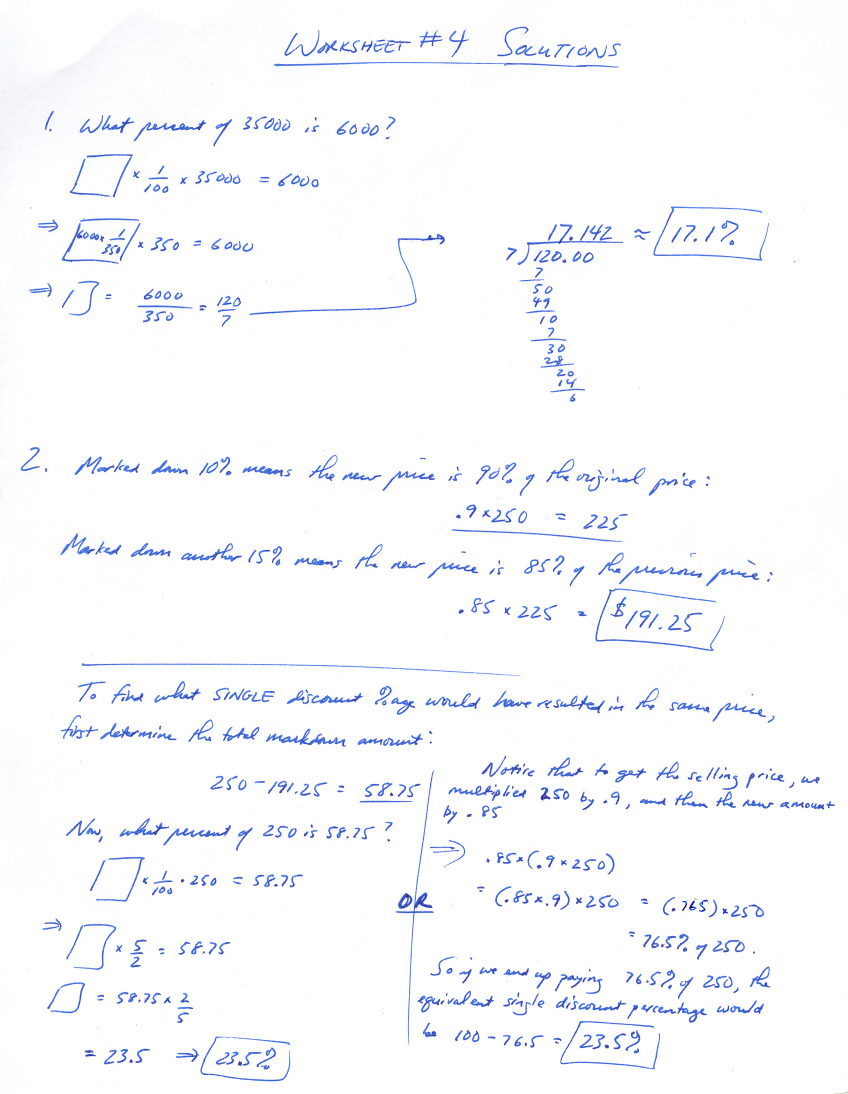 WORKSHEET #4 SOLUTIONS
1. What percent of 35000 is 6000?
□ × 1/100 × 35000 = 6000
⇒ 6000 × 1/350 × 350 = 6000
⇒ □ = 6000/350 = 120/7
17.142 ≈ 17.1%
7)120.00
7
50
49
10
7
30
28
20
14
6
2. Marked down 10% means the new price is 90% of the original price:
.9×250 = 225
Marked down another 15% means the new price is 85% of the previous price:
.85 × 225 = $191.25
To find what SINGLE discount %age would have resulted in the same price,
first determine the total markdown amount:
250 - 191.25 = 58.75
Now, what percent of 250 is 58.75?
□ × 1/100 · 250 = 58.75
⇒ □ × 5/2 = 58.75
□ = 58.75 × 2/5
= 23.5 ⇒ 23.5%
OR
Notice that to get the selling price, we
multiplied 250 by .9, and then the new amount
by .85
⇒ .85×(.9×250)
= (.85×.9)×250 = (.765)×250
= 76.5% of 250.
So if we end up paying 76.5% of 250, the
equivalent single discount percentage would
be 100 - 76.5 = 23.5%